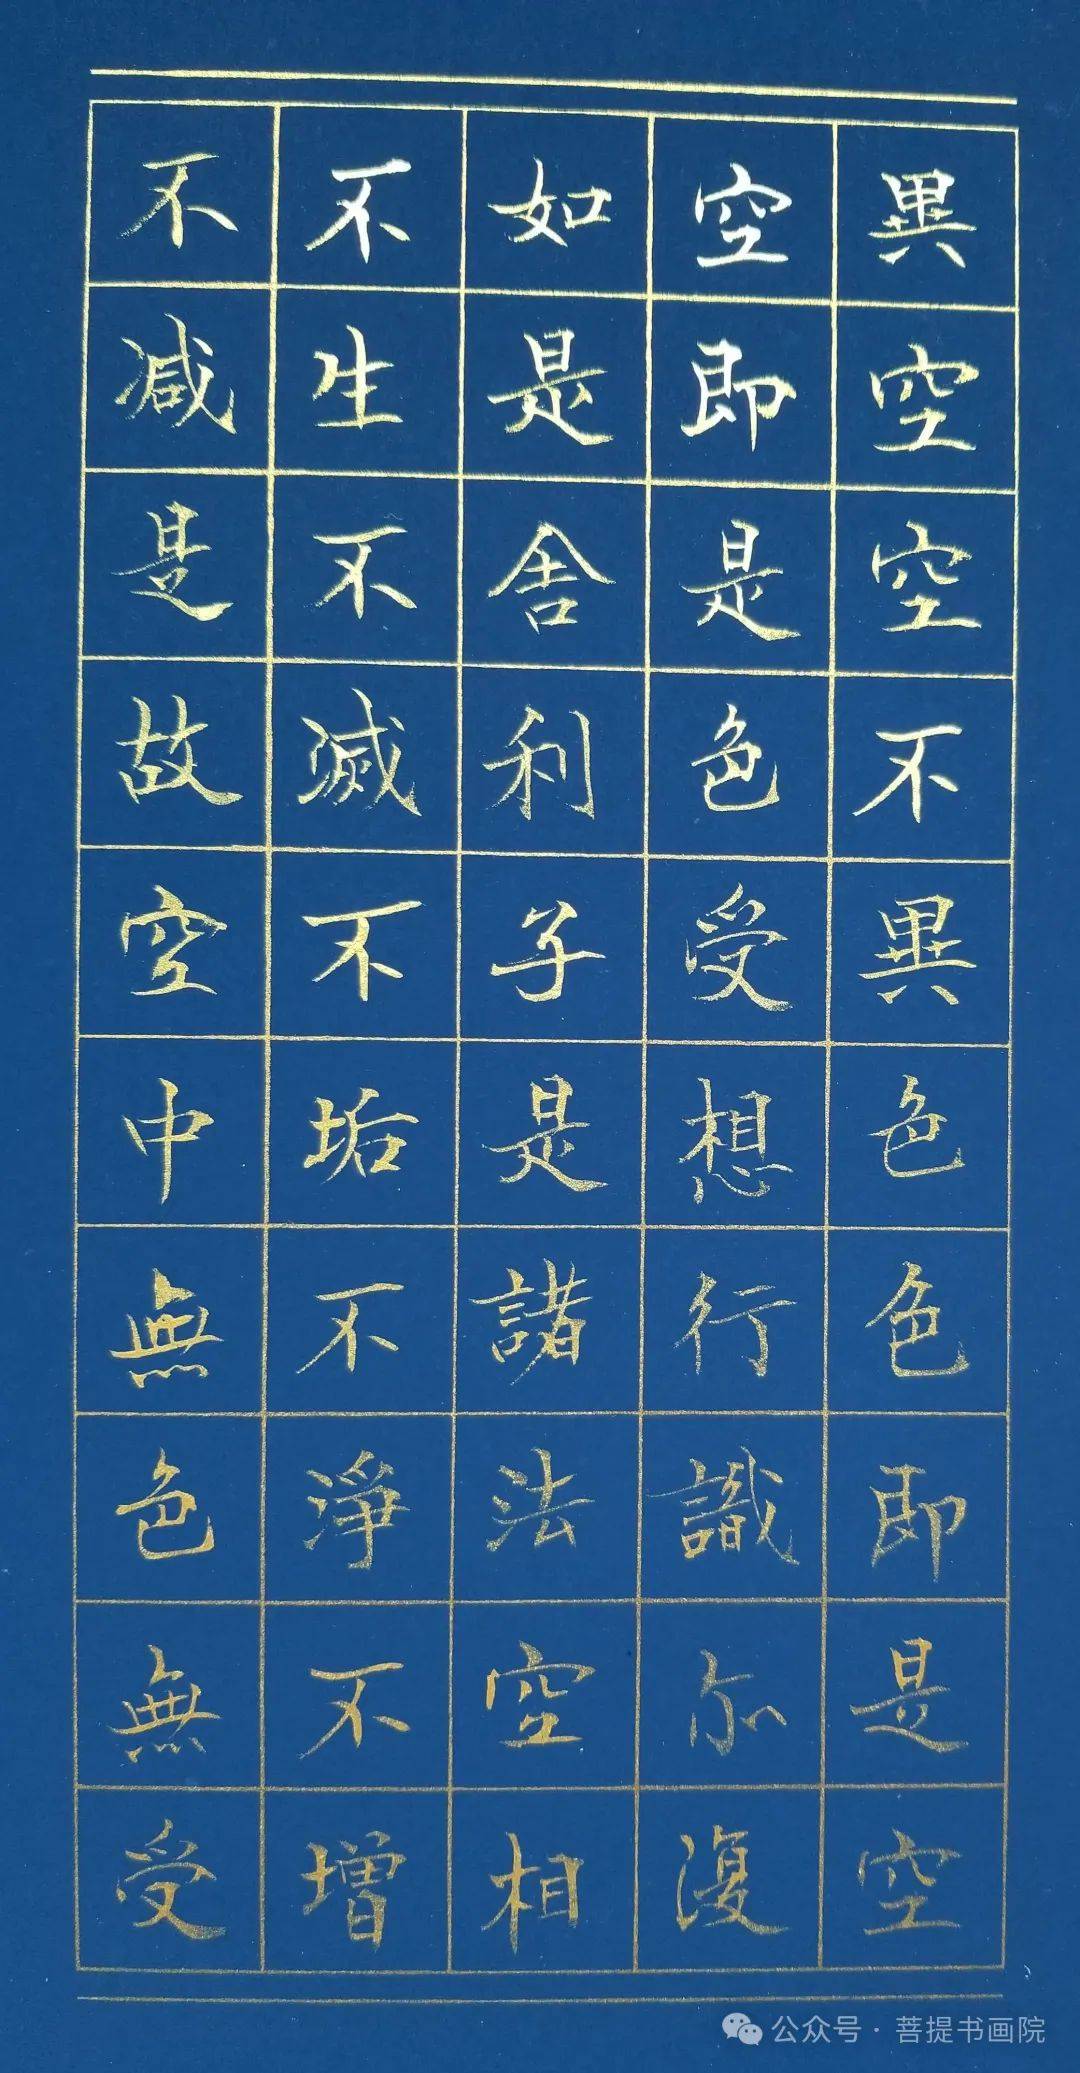 異空空不異色色即是空
空即是色受想行識亦復
如是舍利子是諸法空相
不生不滅不垢不淨不增
不減是故空中無色無受
公众号·菩提书画院